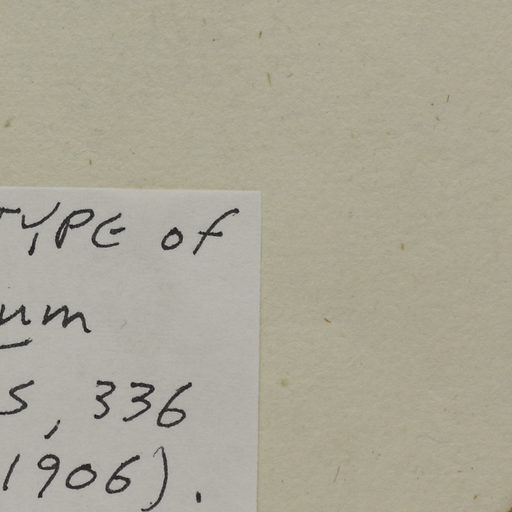 TYPE of
um
s, 336
1906).